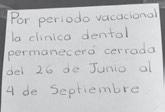 Por periodo vacacional
la clinica dental
permanecerá cerrada
del 26 de Junio al
4 de Septiembre